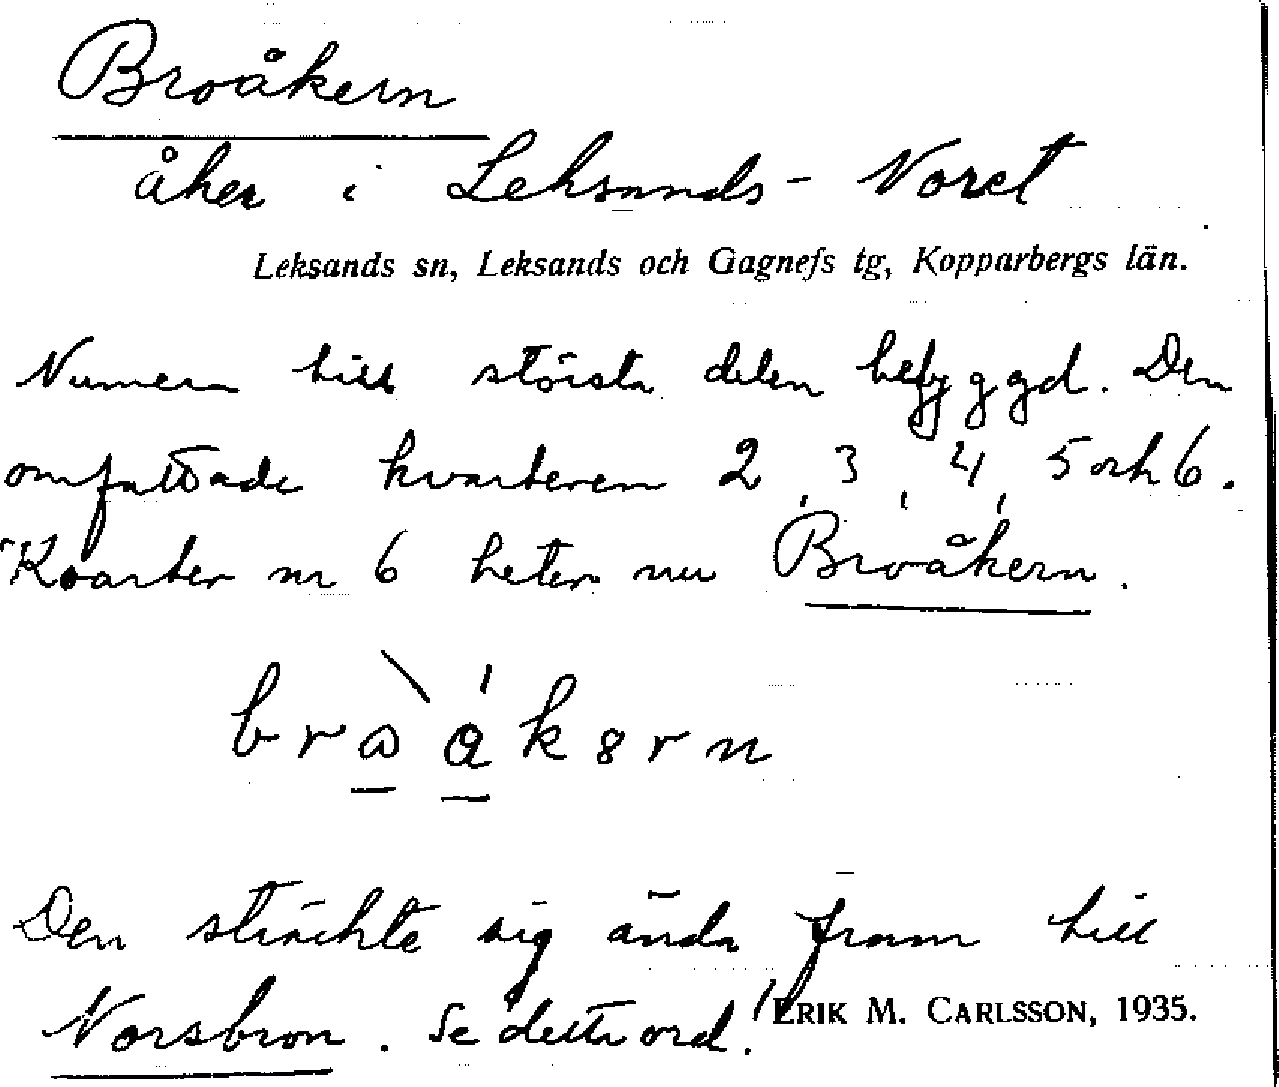 Broåkern
åker i Leksands-Noret
Leksands sn, Leksands och Gagnefs tg, Kopparbergs län.
Numera till största delen bebyggd. Den
omfattade kvarteren 2, 3, 4, 5 och 6.
Kvarter nr 6 heter nu Broåkern.
Den sträckte sig ända fram till
Norsbron. Se detta ord!
ERIK M. CARLSSON, 1935.